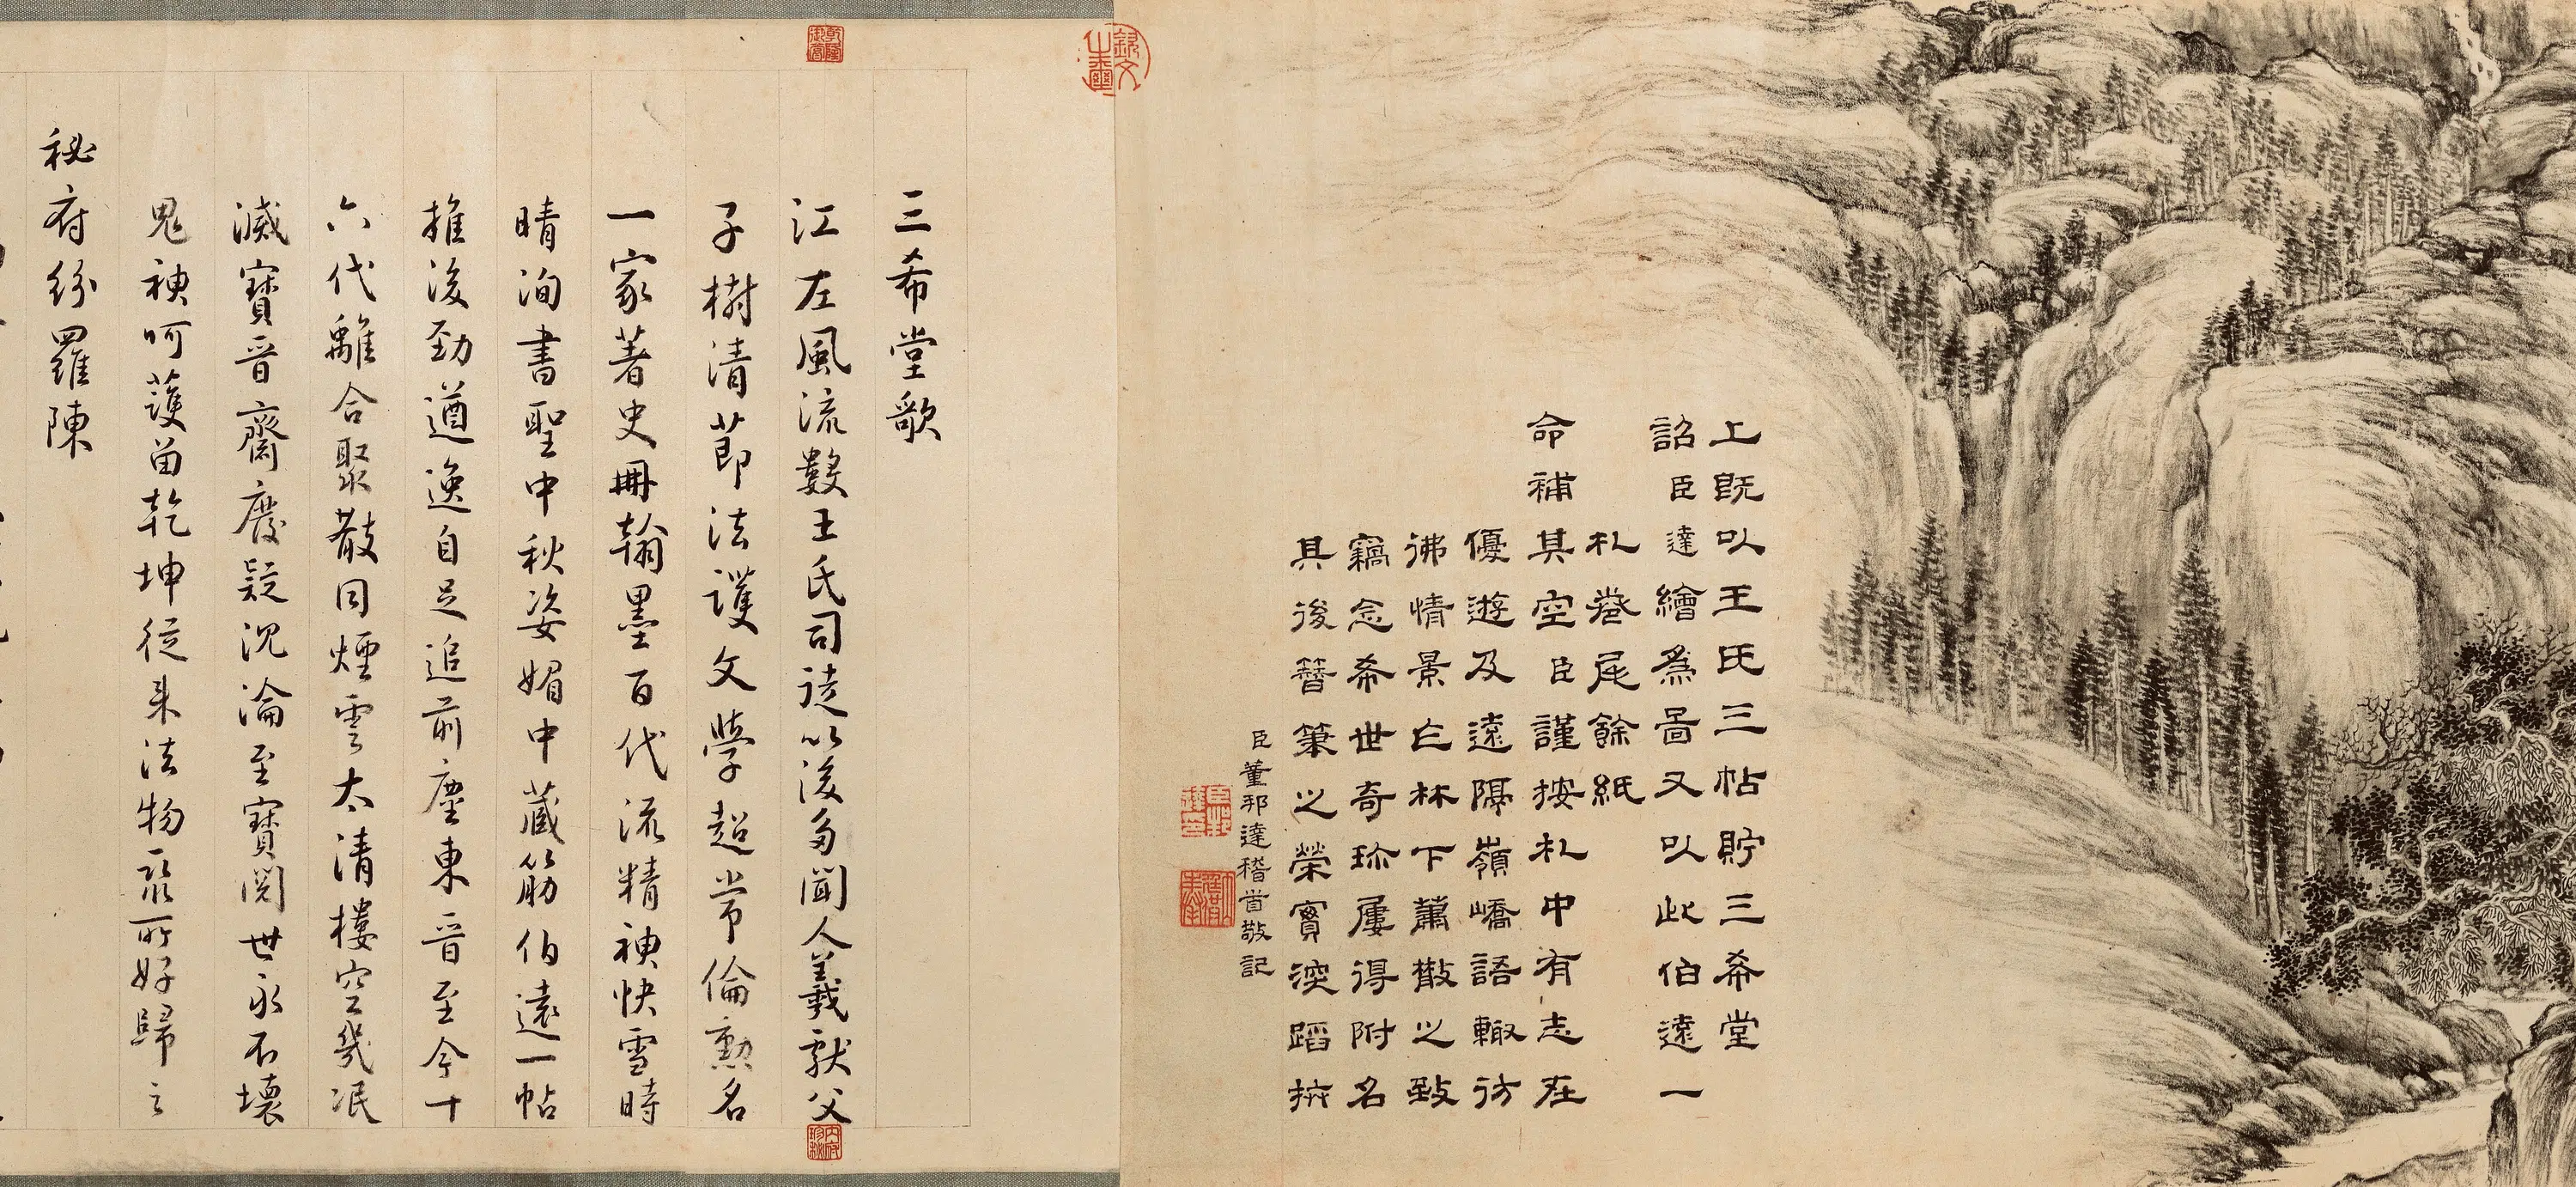 上既以王氏三帖貯三希堂
詔臣達繪為啚又以此伯遠一
札卷尾餘紙
命補其空臣謹按札中有志在
優遊及遠隔嶺嶠語輙彷
彿情景林下蕭散之致
竊念希世奇珎屢得附名
其後簪筆之榮實深蹈抃
臣董邦達稽首敬記
三希堂歌
江左風流數王氏司徒以後多聞人羲獻父
子樹清節法護文學超常倫勳名
一家著史冊翰墨百代流精神快雪時
晴洵書聖中秋姿媚中藏筋伯遠一帖
推後勁遒逸自足追前塵東晉至今十
六代離合聚散同煙雲太清樓空幾泯
滅寶晉齋廢疑沉淪至寶閱世永不壞
鬼神呵護留乾坤從來法物聚所好歸之
秘府紛羅陳